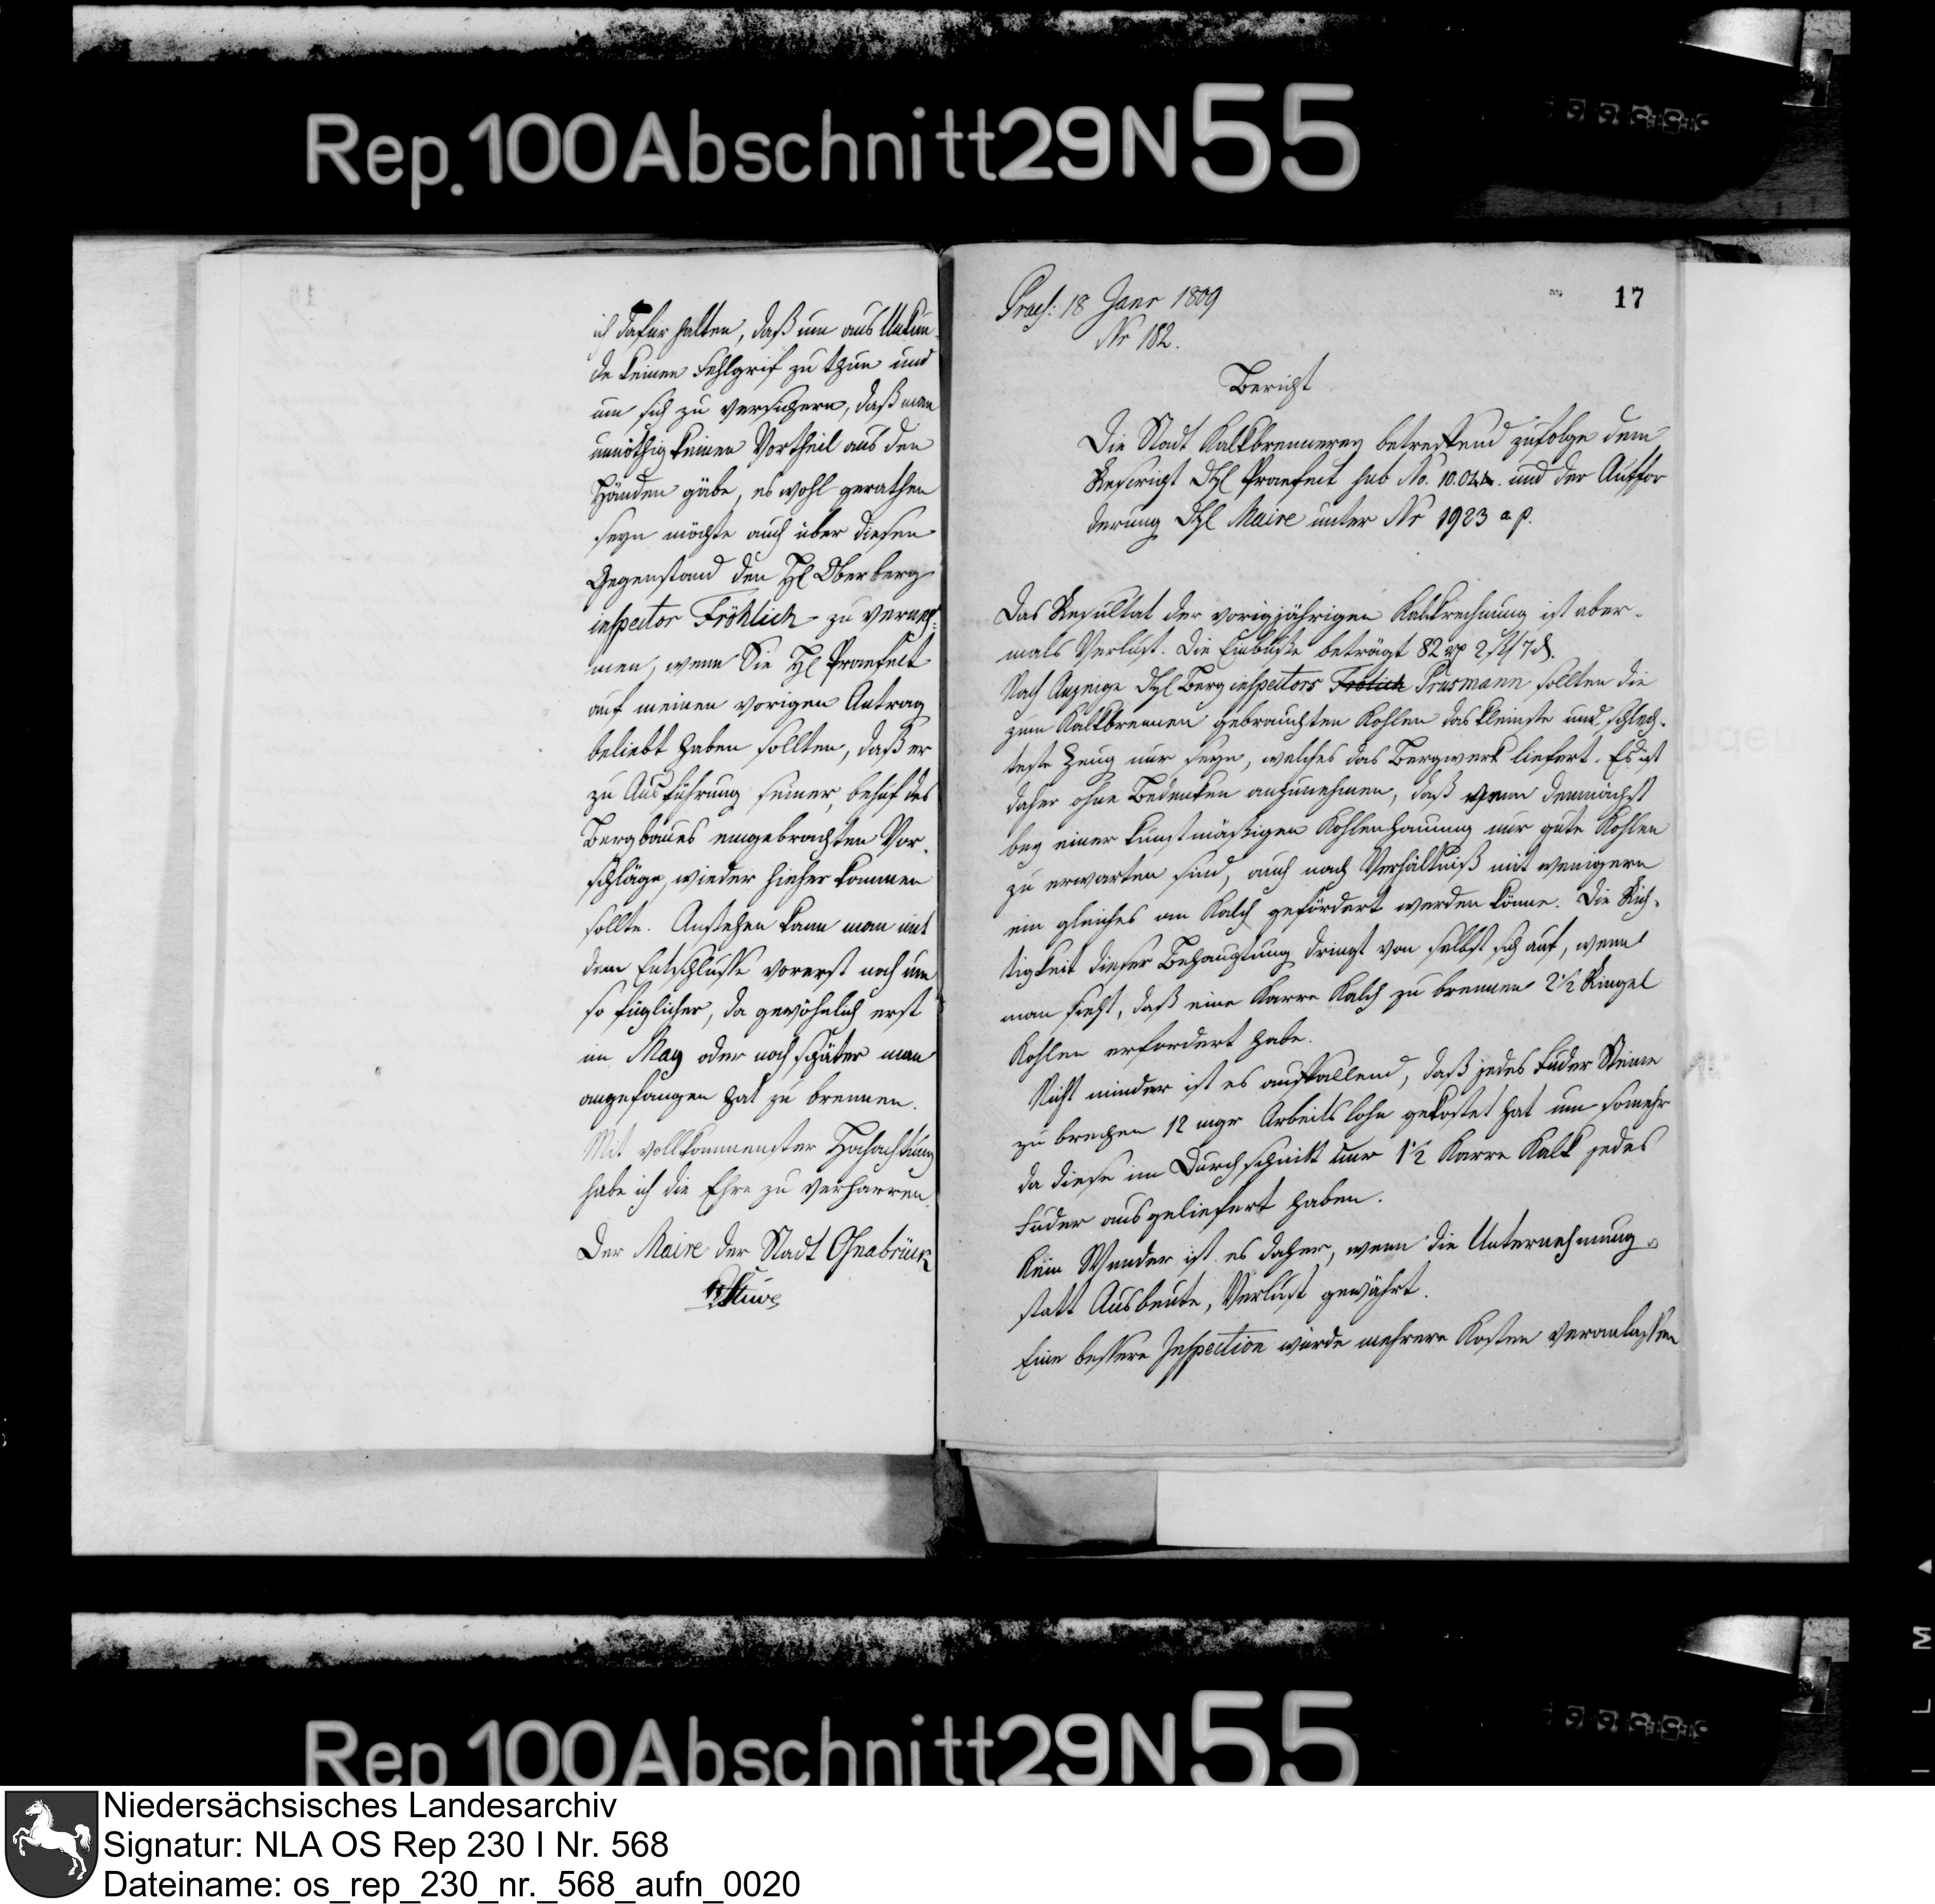 Rep. 100 Abschnitt 29 N 55
ich dafür halten, daß um aus Unkun-
de keinen Fehlgrif zu thun und
um sich zu versichern, daß man
unnöthig keinen Vortheil aus den
Händen gäbe, es wohl gerathen
seyn möchte auch über diesen
Gegenstand den H Oberberg
inspector Fröhlich zu verneh=
men, wenn Sie H Praefect
auf meinen vorigen Antrag
beliebt haben sollten, daß er
zu Ausführung seiner, behuf des
Bergbaues eingebrachten Vor-
schläge, wieder hieher kommen
sollte. Anstehen kann man mit
dem Entschlusse vorerst noch um
so füglicher, da gewöhnlich erst
im May oder noch später man
angefangen hat zu brennen.
Mit vollkommenster Hochachtung
habe ich die Ehre zu verharren
Der Maire der Stadt Osnabrück
Stüve
17
Praes: 18 Janr 1809
Nr 182.
Bericht
Die Stadt Kalkbrennerey betreffend zufolge dem
Rescript Praefect sub No. 10.044. und der Auffor
derung Maire unter Nr 1923 a. p.
Das Resultat der vorigjährigen Kalkrechnung ist aber-
mals Verlust. Die Einbuße beträgt 82 rp 2 ß 7 d.
Nach Anzeige Berginspectors Frölich Prusmann sollten die
zum Kalkbrennen gebrauchten Kohlen das kleinste und schlech-
teste Zeug nur seyn, welches das Bergwerk liefert. Es ist
daher ohne Bedenken anzunehmen, daß wenn demnächst
bey einer kunstmäßigen Kohlenhauung nur gute Kohlen
zu erwarten sind, auch nach Verhältniß mit wenigern
ein gleiches an Kalch gefördert werden könne. Die Rich-
tigkeit dieser Behauptung dringt von selbst sich auf, wenn
man sieht, daß eine Karre Kalch zu brennen 2 1/2 Ringel
Kohlen erfordert habe.
Nicht minder ist es auffallend, daß jedes Fuder Steine
zu brechen 12 mgr Arbeitslohn gekostet hat um somehr
da diese im Durchschnitt nur 1 1/2 Karre Kalk jedes
Fuder ausgeliefert haben.
Kein Wunder ist es daher, wenn die Unternehmung
statt Ausbeute, Verlust gewährt.
Eine bessere Inspection würde mehrere Kosten veranlassen
Rep 100 Abschnitt 29 N 55
Niedersächsisches Landesarchiv
Signatur: NLA OS Rep 230 I Nr. 568
Dateiname: os_rep_230_nr._568_aufn_0020